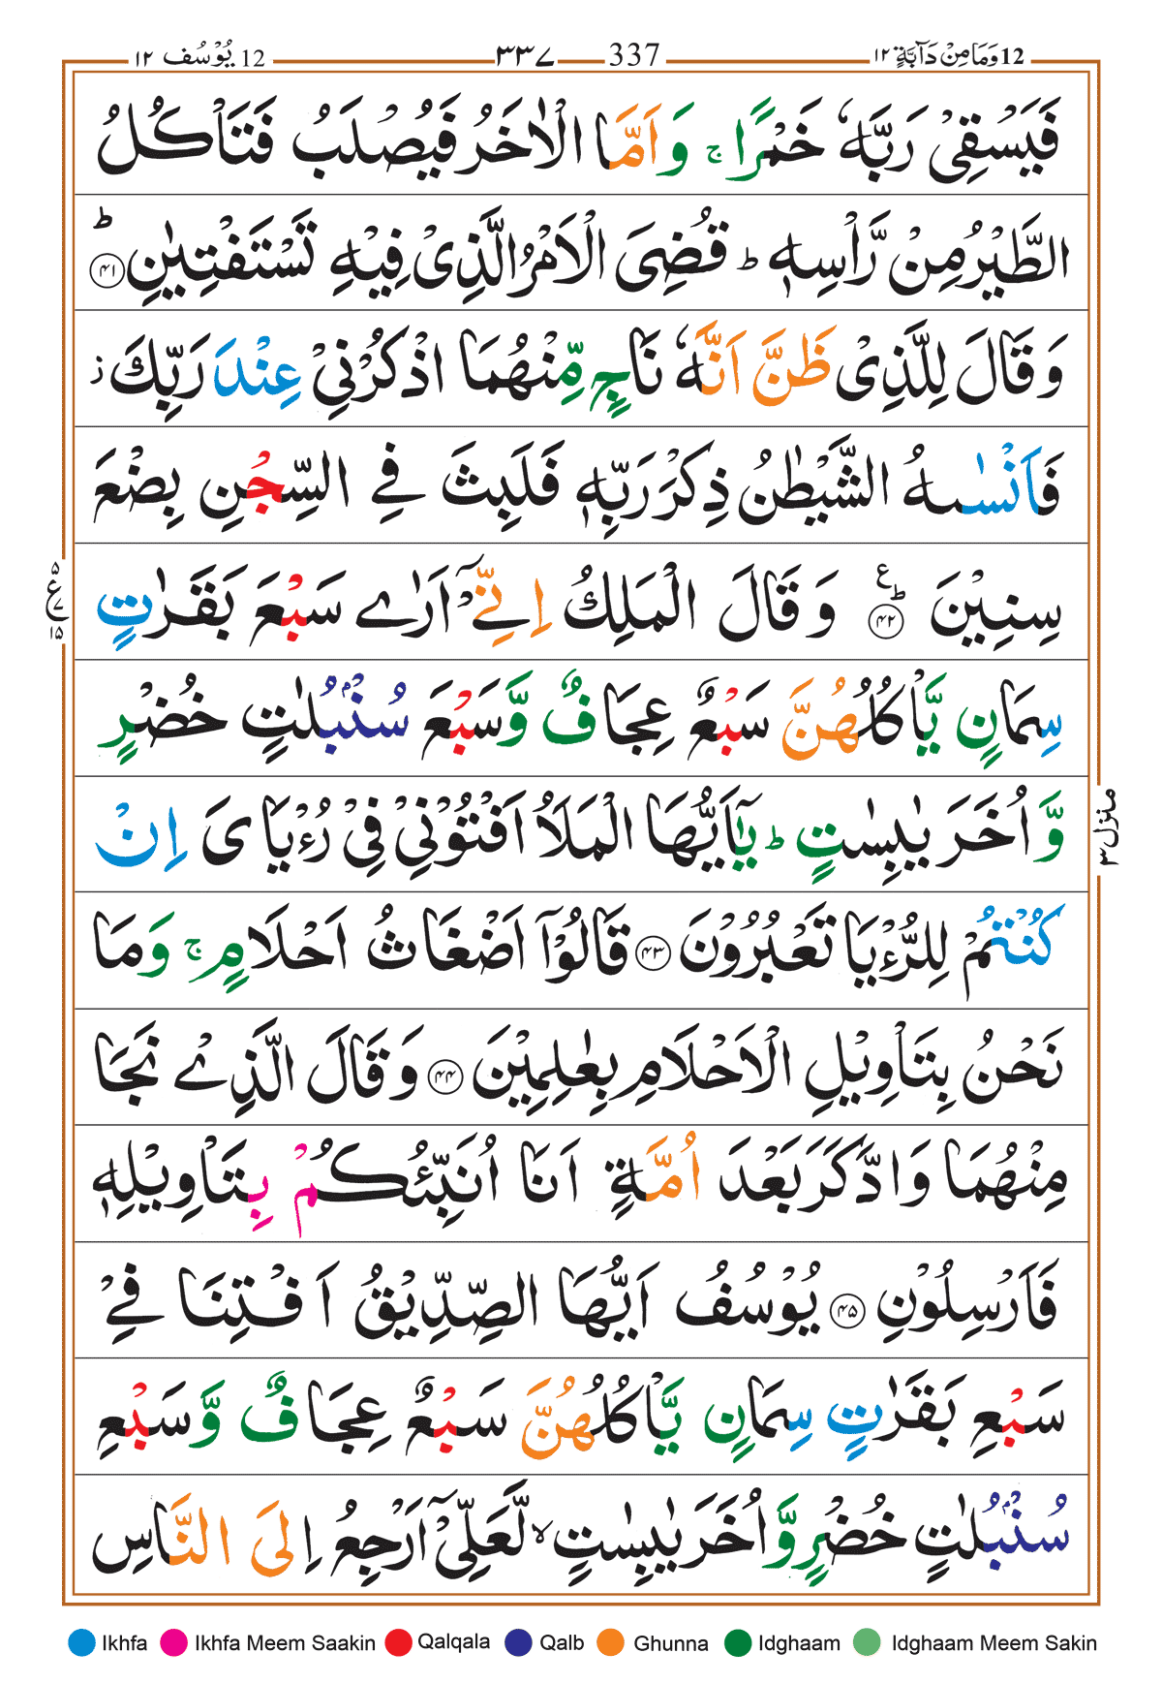 12 يُوْسُف ١٢ ٣٣٧ 337 12 وَمَا مِنْ دَآبَّةٍ ١٢
فَيَسْقِىْ رَبَّهٗ خَمْرًا ۚ وَاَمَّا الْاٰخَرُ فَيُصْلَبُ فَتَاْكُلُ
الطَّيْرُ مِنْ رَّاْسِهٖ ؕ قُضِىَ الْاَمْرُ الَّذِىْ فِيْهِ تَسْتَفْتِيٰنِ ؕ ﴿۴۱﴾
وَقَالَ لِلَّذِىْ ظَنَّ اَنَّهٗ نَاجٍ مِّنْهُمَا اذْكُرْنِىْ عِنْدَ رَبِّكَ ز
فَاَنْسٰىهُ الشَّيْطٰنُ ذِكْرَ رَبِّهٖ فَلَبِثَ فِى السِّجْنِ بِضْعَ
سِنِيْنَ ؕ ﴿۴۲﴾ ع وَقَالَ الْمَلِكُ اِنِّىْۤ اَرٰى سَبْعَ بَقَرٰتٍ
سِمَانٍ يَّاْكُلُهُنَّ سَبْعٌ عِجَافٌ وَّسَبْعَ سُنْۢبُلٰتٍ خُضْرٍ
وَّاُخَرَ يٰبِسٰتٍ ؕ يٰۤاَيُّهَا الْمَلَاُ اَفْتُوْنِىْ فِىْ رُءْيَاىَ اِنْ
كُنْتُمْ لِلرُّءْيَا تَعْبُرُوْنَ ﴿۴۳﴾ قَالُوْۤا اَضْغَاثُ اَحْلَامٍ ۚ وَمَا
نَحْنُ بِتَاْوِيْلِ الْاَحْلَامِ بِعٰلِمِيْنَ ﴿۴۴﴾ وَقَالَ الَّذِىْ نَجَا
مِنْهُمَا وَادَّكَرَ بَعْدَ اُمَّةٍ اَنَا اُنَبِّئُكُمْ بِتَاْوِيْلِهٖ
فَاَرْسِلُوْنِ ﴿۴۵﴾ يُوْسُفُ اَيُّهَا الصِّدِّيْقُ اَفْتِنَا فِىْ
سَبْعِ بَقَرٰتٍ سِمَانٍ يَّاْكُلُهُنَّ سَبْعٌ عِجَافٌ وَّسَبْعِ
سُنْۢبُلٰتٍ خُضْرٍ وَّاُخَرَ يٰبِسٰتٍ ۙ لَّعَلِّىْۤ اَرْجِعُ اِلَى النَّاسِ
٥ ع ٧ ١٥
منزل ٣
Ikhfa Ikhfa Meem Saakin Qalqala Qalb Ghunna Idghaam Idghaam Meem Sakin